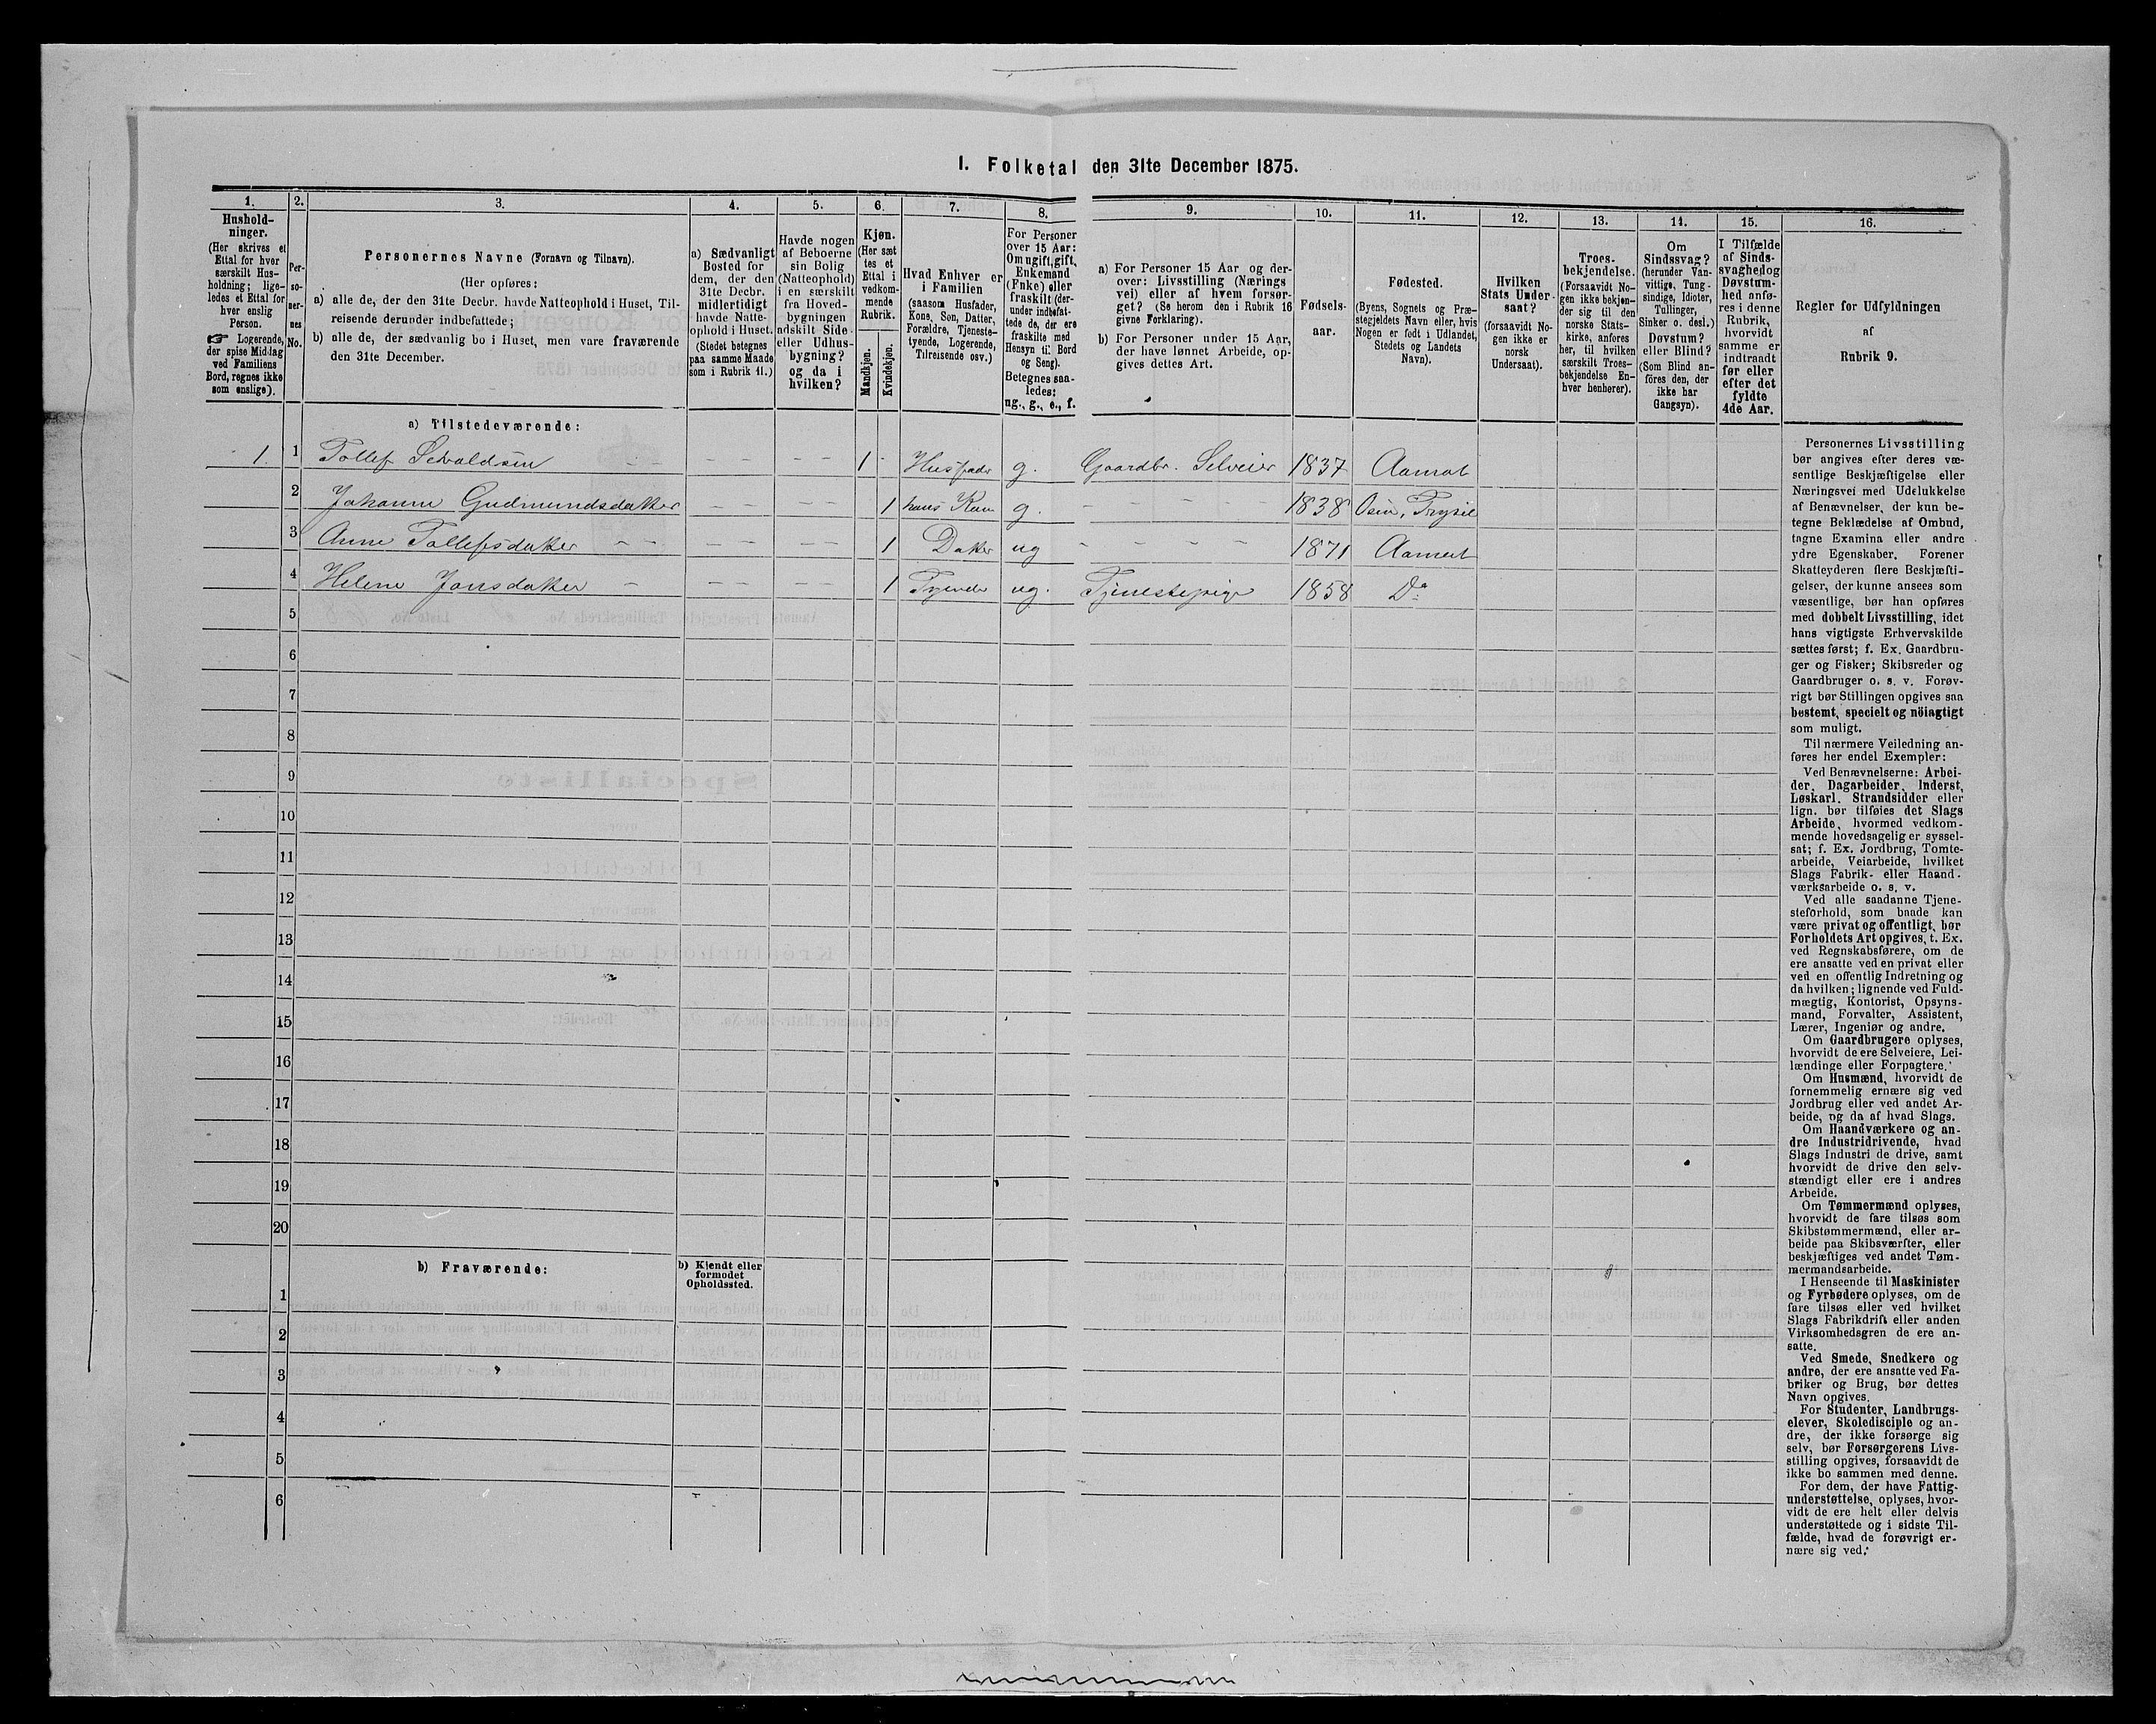 I. Folketal den 31te December 1875.
1.
Hushold-
ninger.
(Her skrives et
Ettal for hver
særskilt Hus-
holdning; lige-
ledes et Ettal for
hver enslig
Person.
☞ Logerende,
der spise Middag
ved Familiens
Bord, regnes ikke
som enslige).
2.
Per-
so-
ner-
nes
No.
3.
Personernes Navne (Fornavn og Tilnavn).
(Her opføres:
a) alle de, der den 31te Decbr. havde Natteophold i Huset, Til-
reisende derunder indbefattede;
b) alle de, der sædvanlig bo i Huset, men vare fraværende
den 31te December.
4.
a) Sædvanligt
Bosted for
dem, der den
31te Decbr.
midlertidigt
havde Natte-
ophold i Huset.
(Stedet betegnes
paa samme Maade
som i Rubrik 11.)
5.
Havde nogen
af Beboerne
sin Bolig
(Natteophold)
i en særskilt
fra Hoved-
bygningen
adskilt Side-
eller Udhus-
bygning?
og da i
hvilken?
6.
Kjøn.
(Her sæt
tes et
Ettal i
vedkom-
mende
Rubrik.
Mandkjøn.
Kvindekjøn.
7.
Hvad Enhver er
i Familien
(saasom Husfader,
Kone, Søn, Datter,
Forældre, Tjeneste-
tyende, Logerende,
Tilreisende osv.)
8.
For Personer
over 15 Aar:
Om ugift, gift,
Enkemand
(Fnke) eller
fraskilt (der-
under indbefat-
tede de, der ere
fraskilte med
Hensyn til Bord
og Seng).
Betegnes saa-
ledes:
ug., g., e., f.
9.
a) For Personer 15 Aar og der-
over: Livsstilling (Nærings
vei) eller af hvem forsør-
get? (Se herom den i Rubrik 16
givne Forklaring).
b) For Personer under 15 Aar,
der have lønnet Arbeide, op-
gives dettes Art.
10.
Fødsels-
aar.
11.
Fødested.
(Byens, Sognets og Præ-
stegjeldets Navn eller, hvis
Nogen er født i Udlandet,
Stedets og Landets
Navn).
12.
Hvilken
Stats Under-
saat?
(forsaavidt No-
gen ikke er
norsk
Undersaat).
13.
Troes-
bekjendelse.
(Forsaavidt No-
gen ikke bekjen-
der sig til den
norske Stats-
kirke, anføres
her, til hvilken
særskilt Troes-
bekjendelse En-
hver henhører).
14.
Om
Sindssvag?
(herunder Van-
vittige, Tung-
sindige, Idioter,
Tullinger,
Sinker o. desl.)
Døvstum?
eller Blind?
(Som Blind an-
føres den, der
ikke har
Gangsyn).
15.
I Tilfælde
af Sinds-
svaghed og
Døvstum-
hed anfø-
res i denne
Rubrik,
hvorvidt
samme er
indtraadt
før eller
efter det
fyldte
4de Aar.
16.
Regler for Udfyldningen
af
Rubrik 9.
a) Tilstedeværende:
1. 1 Tollef Sevaldsen - - - - 1 Husfader g. Gaardbr. Selveier 1837 Aamot
2 Johanne Gudmundsdatter - - - - 1 hans Kone g. - - - - 1838 Osen, Trysil
3 Anne Tollefsdatter - - - - - - 1 Datter ug - - - - 1871 Aamot
4 Helene Jonsdatter - - - - - 1 Tyende ug. Tjenestepige 1858 Do
5
6
7
8
9
10
11
12
13
14
15
16
17
18
19
20
b) Fraværende:
b) Kjendt eller
formodet
Opholdssted.
1
2
3
4
5
6
Personernes Livsstilling
bør angives efter deres væ-
sentlige Beskjæftigelse eller
Næringsvei med Udelukkelse
af Benævnelser, der kun be-
tegne Beklædelse af Ombud,
tagne Examina eller andre
ydre Egenskaber. Forener
Skatteyderen flere Beskjæfti-
gelser, der kunne ansees som
væsentlige, bør han opføres
med dobbelt Livsstilling, idet
hans vigtigste Erhvervskilde
sættes først; f. Ex. Gaardbru-
ger og Fisker; Skibsreder og
Gaardbruger o. s. v. Forøv-
rigt bør Stillingen opgives saa
bestemt, specielt og nöiagtigt
som muligt.
Til nærmere Veiledning an-
føres her endel Exempler:
Ved Benævnelserne: Arbei-
der, Dagarbeider, Inderst,
Løskarl, Strandsidder eller
lign. bør tilføies det Slags
Arbeide, hvormed vedkom-
mende hovedsagelig er syssel-
sat; f. Ex. Jordbrug, Tomte-
arbeide, Veiarbeide, hvilket
Slags Fabrik- eller Haand-
værksarbeide o. s. v.
Ved alle saadanne Tjene-
steforhold, som baade kan
være privat og offentligt, bør
Forholdets Art opgives, t. Ex.
ved Regnskabsførere, om de
ere ansatte ved en privat eller
ved en offentlig Indretning og
da hvilken; lignende ved Fuld-
mægtig, Kontorist, Opsyns-
mand, Forvalter, Assistent,
Lærer, Ingeniør og andre.
Om Gaardbrugere oplyses,
hvorvidt de ere Selveiere, Lei-
lændinge eller Forpagtere.
Om Husmænd, hvorvidt de
fornemmelig ernære sig ved
Jordbrug eller ved andet Ar-
beide, og da af hvad Slags.
Om Haandværkere og an-
dre Industridrivende, hvad
Slags Industri de drive, samt
hvorvidt de drive den selv-
stændigt eller ere i andres
Arbeide.
Om Tømmermænd oplyses,
hvorvidt de fare tilsøs som
Skibstømmermænd, eller ar-
beide paa Skibsværfter, eller
beskjæftiges ved andet Tøm-
mermandsarbeide.
I Henseende til Maskinister
og Fyrbødere oplyses, om de
fare tilsøs eller ved hvilket
Slags Fabrikdrift eller anden
Virksomhedsgren de ere an-
satte.
Ved Smede, Snedkere og
andre, der ere ansatte ved Fa-
briker og Brug, bør dettes
Navn opgives.
For Studenter, Landbrugs-
elever, Skoledisciple og an-
dre, der ikke forsørge sig
selv, bør Forsørgerens Livs-
stilling opgives, forsaavidt de
ikke bo sammen med denne.
For dem, der have Fattig-
understøttelse, oplyses, hvor-
vidt de ere helt eller delvis
understøttede og i sidste Til-
fælde, hvad de forøvrigt er-
nære sig ved.